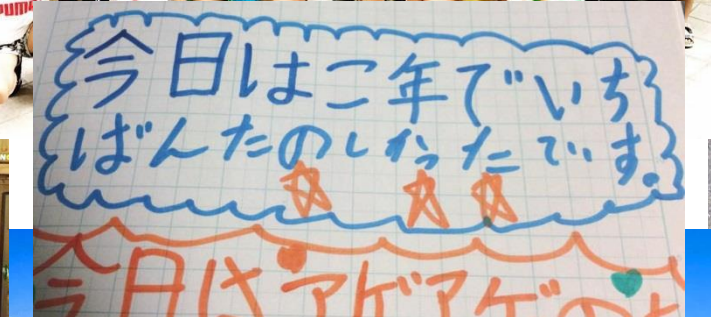 PUMA
今日はこ年でいち
ばんたのしかったです。
今日はアゲアゲの